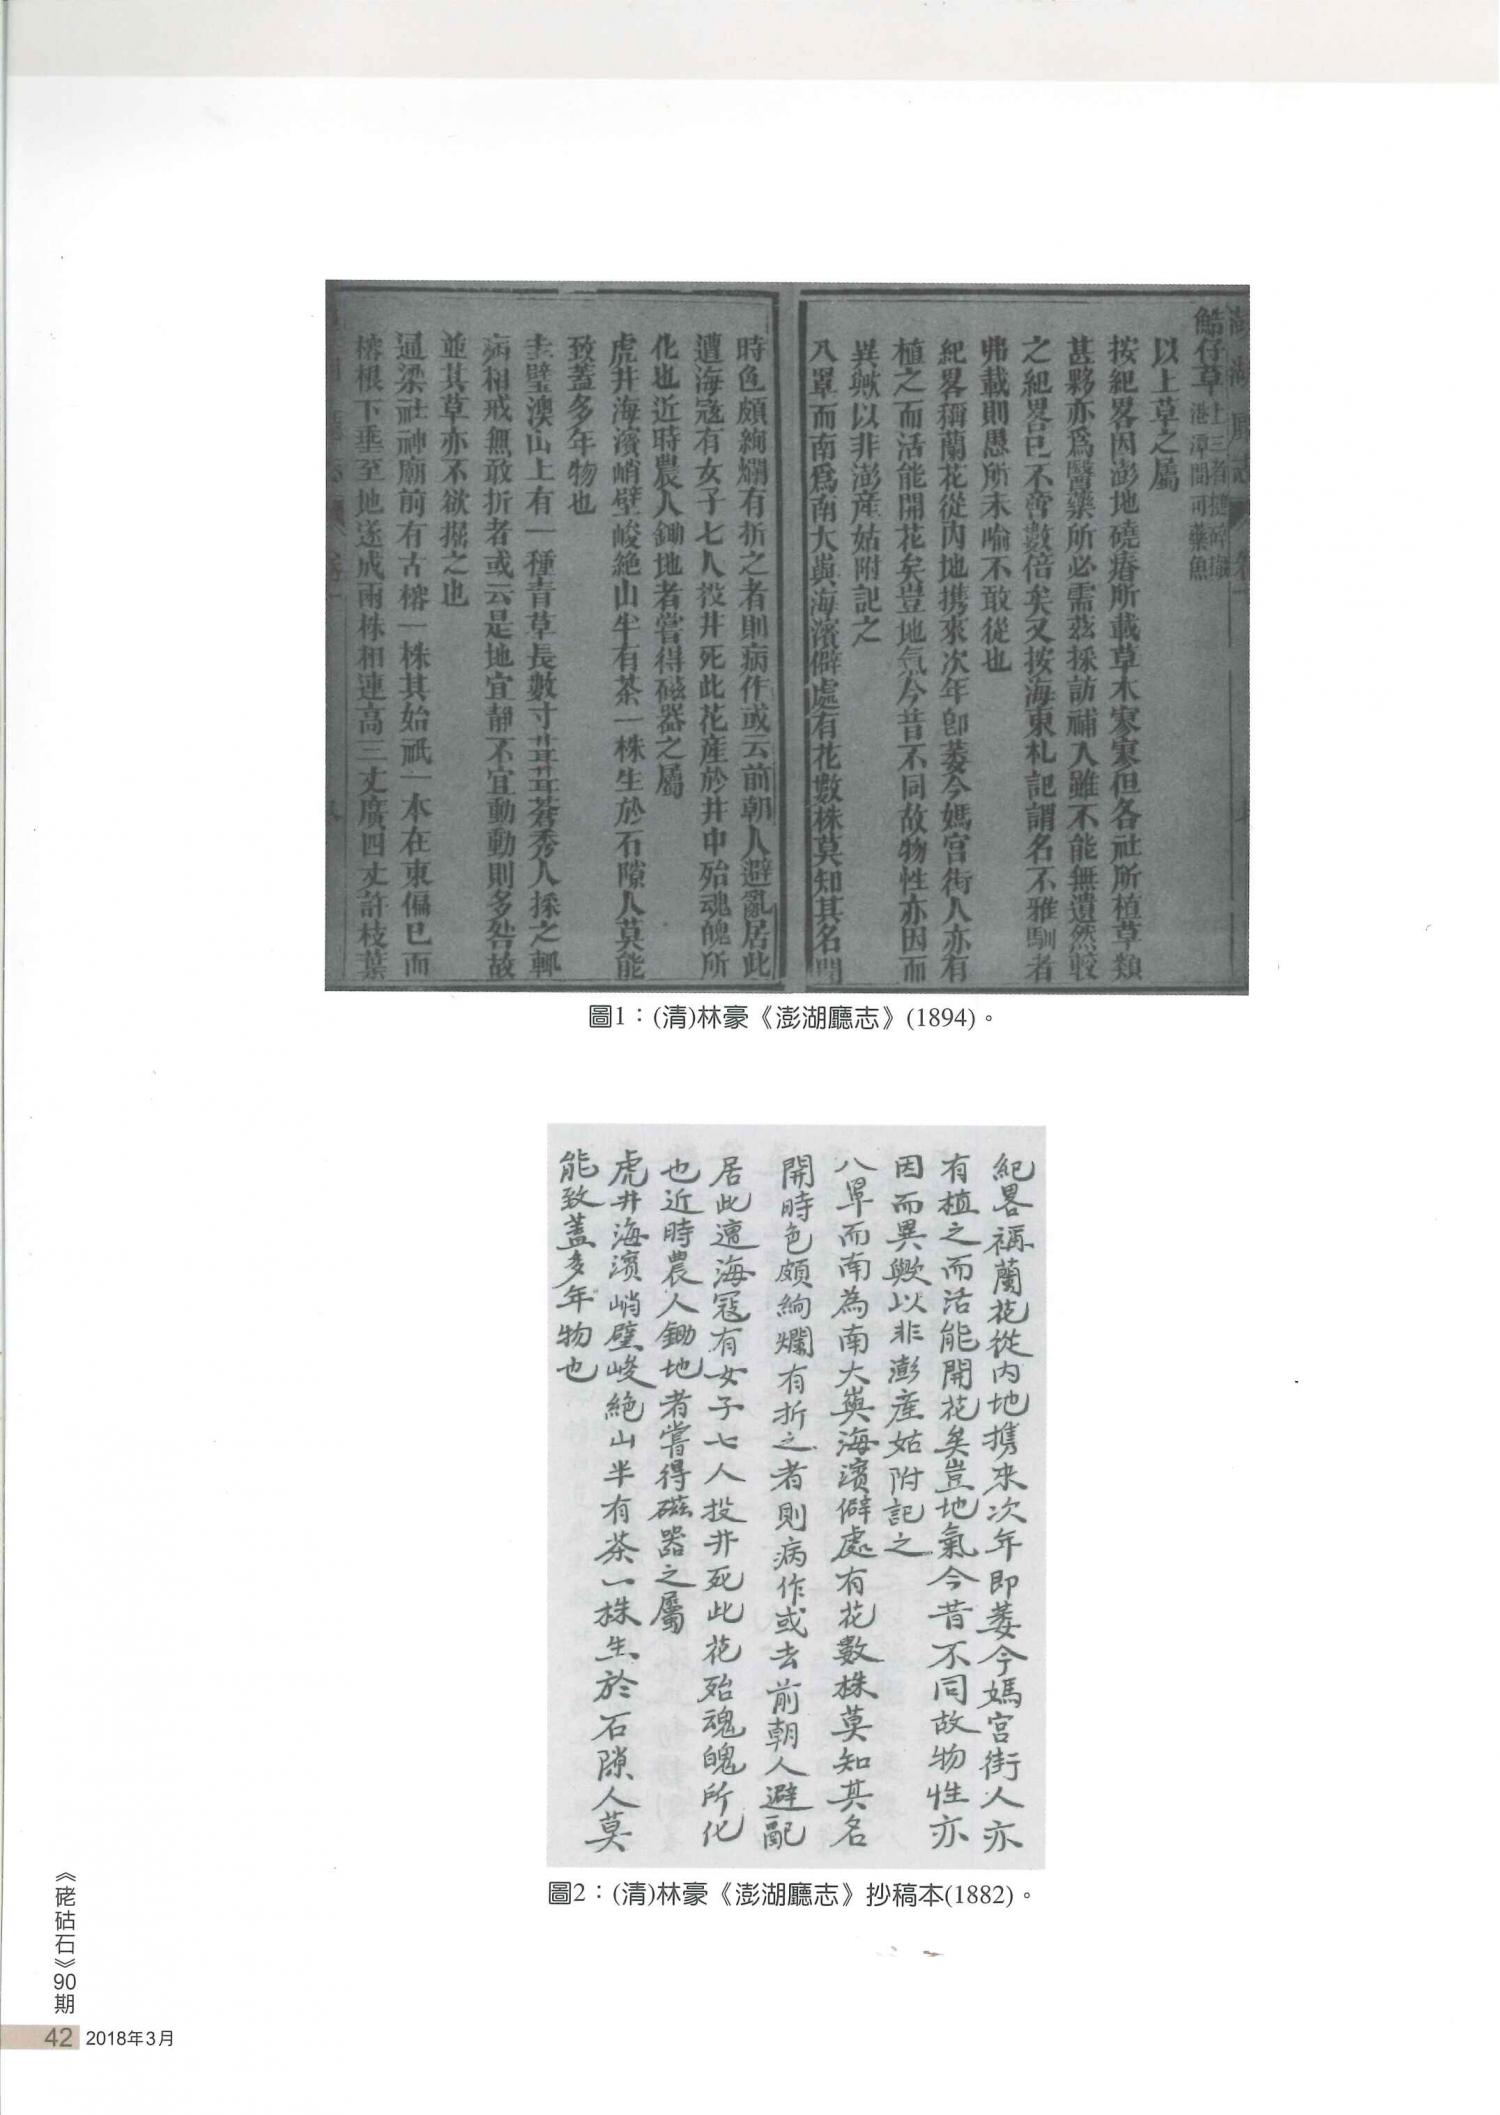 鯌仔草上三者搥碎擲港潭間可藥魚
以上草之屬
按紀畧因澎地磽瘠所載草木寥寥但各社所植草類
甚夥亦爲醫藥所必需茲採訪補入雖不能無遺然較
之紀畧已不啻數倍矣又按海東札記謂名不雅馴者
弗載則愚所未喻不敢從也
紀畧稱蘭花從內地携來次年卽萎今媽宮街人亦有
植之而活能開花矣豈地氣今昔不同故物性亦因而
異歟以非澎產姑附記之
八罩而南爲南大嶼海濱僻處有花數株莫知其名開
時色頗絢爛有折之者則病作或云前朝人避亂居此
遭海寇有女子七人投井死此花產於井中殆魂魄所
化也近時農人鋤地者嘗得磁器之屬
虎井海濱峭壁峻絕山半有茶一株生於石隙人莫能
致蓋多年物也
圭壁澳山上有一種青草長數寸茸茸蒼秀人採之輒
病相戒無敢折者或云是地宜靜不宜動動則多咎故
並其草亦不欲掘之也
通梁社神廟前有古榕一株其始祇一本在東偏已而
榕根下垂至地遂成兩株相連高三丈廣四丈許枝葉
圖1：(清)林豪《澎湖廳志》(1894)。
紀畧稱蘭花從內地携來次年即萎今媽宮街人亦
有植之而活能開花矣豈地氣今昔不同故物性亦
因而異歟以非澎產姑附記之
八罩而南為南大嶼海濱僻處有花數株莫知其名
開時色頗絢爛有折之者則病作或去前朝人避亂
居此遭海寇有女子七人投井死此花殆魂魄所化
也近時農人鋤地者嘗得磁器之屬
虎井海濱峭壁峻絕山半有茶一株生於石隙人莫
能致蓋多年物也
圖2：(清)林豪《澎湖廳志》抄稿本(1882)。
《硓𥑮石》90期
42 2018年3月